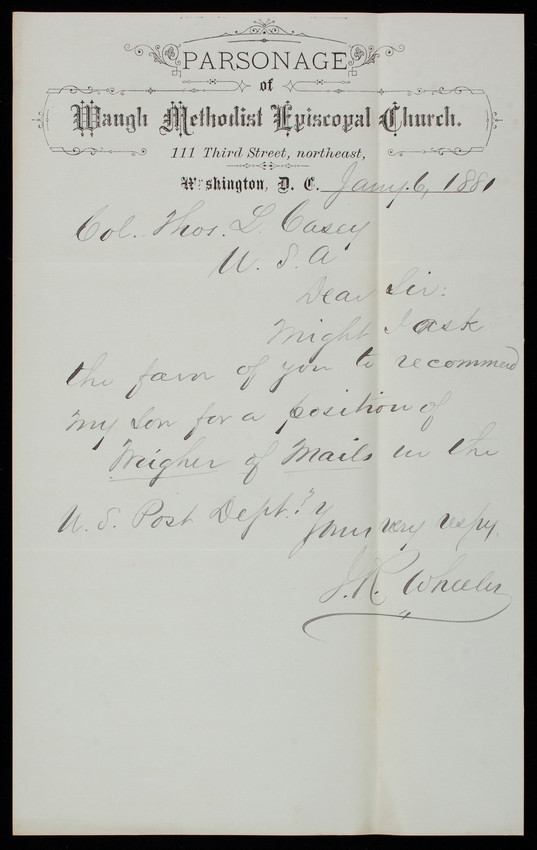 PARSONAGE
of
Waugh Methodist Episcopal Church.
111 Third Street, northeast,
Washington, D. C. Jany. 6, 1881
Col. Thos. L. Casey
U. S. A
Dear Sir:
Might I ask
the favor of you to recommend
my son for a position of
Weigher of Mails in the
U. S. Post Dept.?
Yours very respy.
J. R. Wheeler